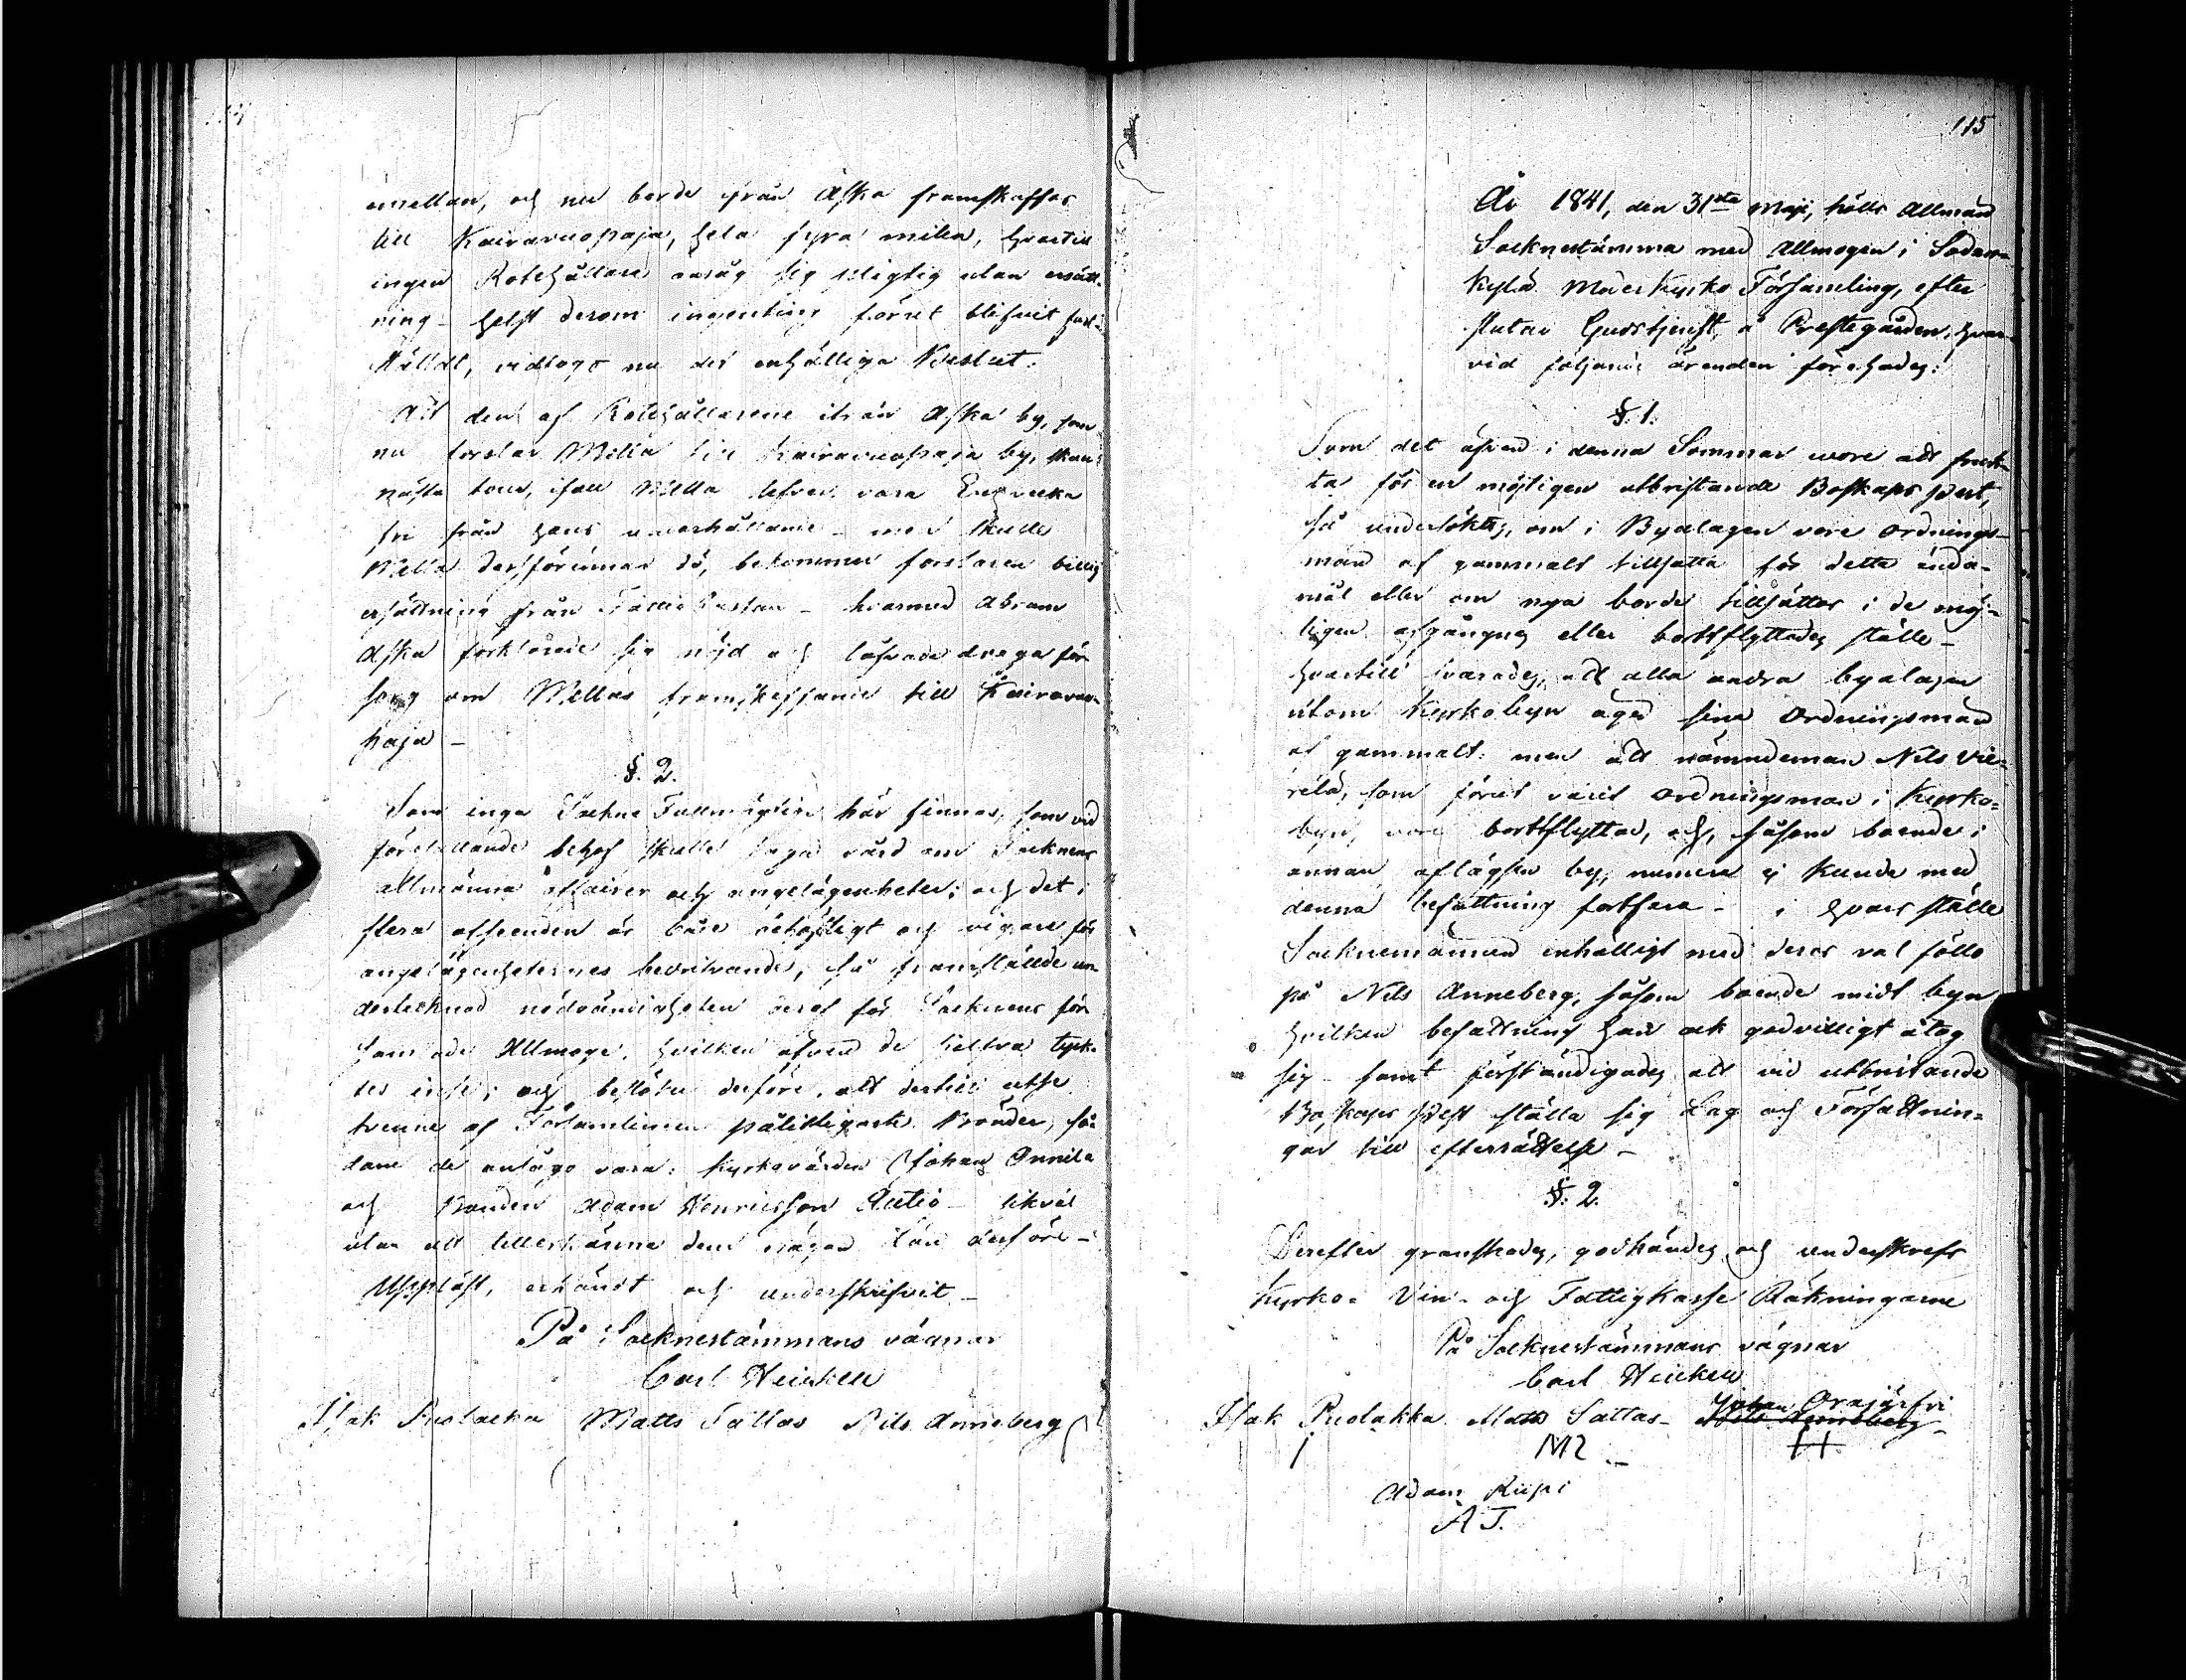 114
emellan, och nu borde ifrån Aska framskaffas
till Kairavuopaja, hela fyra milen, hvartill
ingen Rotehållare ansåg sig pligtig utan ersätt-
ning – helst derom ingenting förut blifvit fast-
ställdt, vidtogs nu det enhälliga Beslut:
Att den af Rotehållarene ifrån Aska by, som
nu forslar Mella till Kairavuopaja by, skan
nästa tour, ifall Mella lefver, vara En vecka
fri från hans underhållande – men skulle
Mella dessförinnan dö, bekommer forslaren billig
ersättning från Fattig Cassan – hvarmed Abram
Aska förklarade sig nöjd och lofvade draga för-
sorg om Mellas framskaffande till Kairavuo-
paja –
§. 2.
Som inga Sockne Fullmägtige här finnas, som vid
förefallande behof skulle taga vård om Socknens
allmänna affairer och angelägenheter; och det i
flera afseenden är både nödigt och vigare för
angelägenheternes bedrifvande, så framställde un-
dertecknad nödvändigheten deraf för Socknens för-
samlade Allmoge, hvilken äfven de sielfva tyck-
tes inse; och beslöto derföre, att dertill utse
tvenne af Församlingens pålitligaste Bönder, så-
dane de ansågo vara: Kyrkovärden Johan Onnila
och Bonden Adam Henricsson Autio – likväl
utan att tillerkänna dem någon lön derföre –
Uppläst, erkändt och underskrifvit –
På Socknestämmans vägnar
Carl Heickell
Isak Puolacka Matts Sattas Nils Anneberg
115
År 1841, den 31sta Maji, hölls Allmän
Socknestämma med Allmogen i Sodan-
kylä Moderkyrko Församling, efter
slutad Gudstjenst, å Prestegården, hvar-
vid följande ärenden förehades:
§. 1.
Som det äfven i denna Sommar wore att fruk-
ta för en möjligen utbristande Boskaps pest,
så undersöktes, om i Byalagen vore ordnings-
män af gammalt tillsatta för detta ända-
mål eller om nya borde tillsättas i de möj-
ligen afgångnes eller bortflyttades ställe –
hvartill svarades, att alla andra byalagen
utom Kyrkobyn äga sine Ordningsmän
af gammalt: men att nämndeman Nils Vie-
rilä, som förut varit ordningsman i Kyrko-
byn, vore bortflyttad, och, såsom boende i
annan aflägsen by, numera ej kunde med
denna befattning fortfara – i hvars ställe
Socknemännen enhälligt med deras val föllo
på Nils Anneberg, såsom boende midt i byn
hvilken befattning han ock godvilligt åtog
sig – samt förständigades att vid utbristande
Boskaps Pest ställa sig Lag och Författnin-
gar till efterrättelse –
§. 2.
Derefter granskades, godkändes och underskrefs
Kyrko- Vin- och Fattigkasse Räkningarne
På Socknestämmans vägnar
Carl Heickell
Isak Puolakka Matts Sattas – Johan Orajärfvi
Nils Anneberg
MS
H
Adam Kiipi
A J.